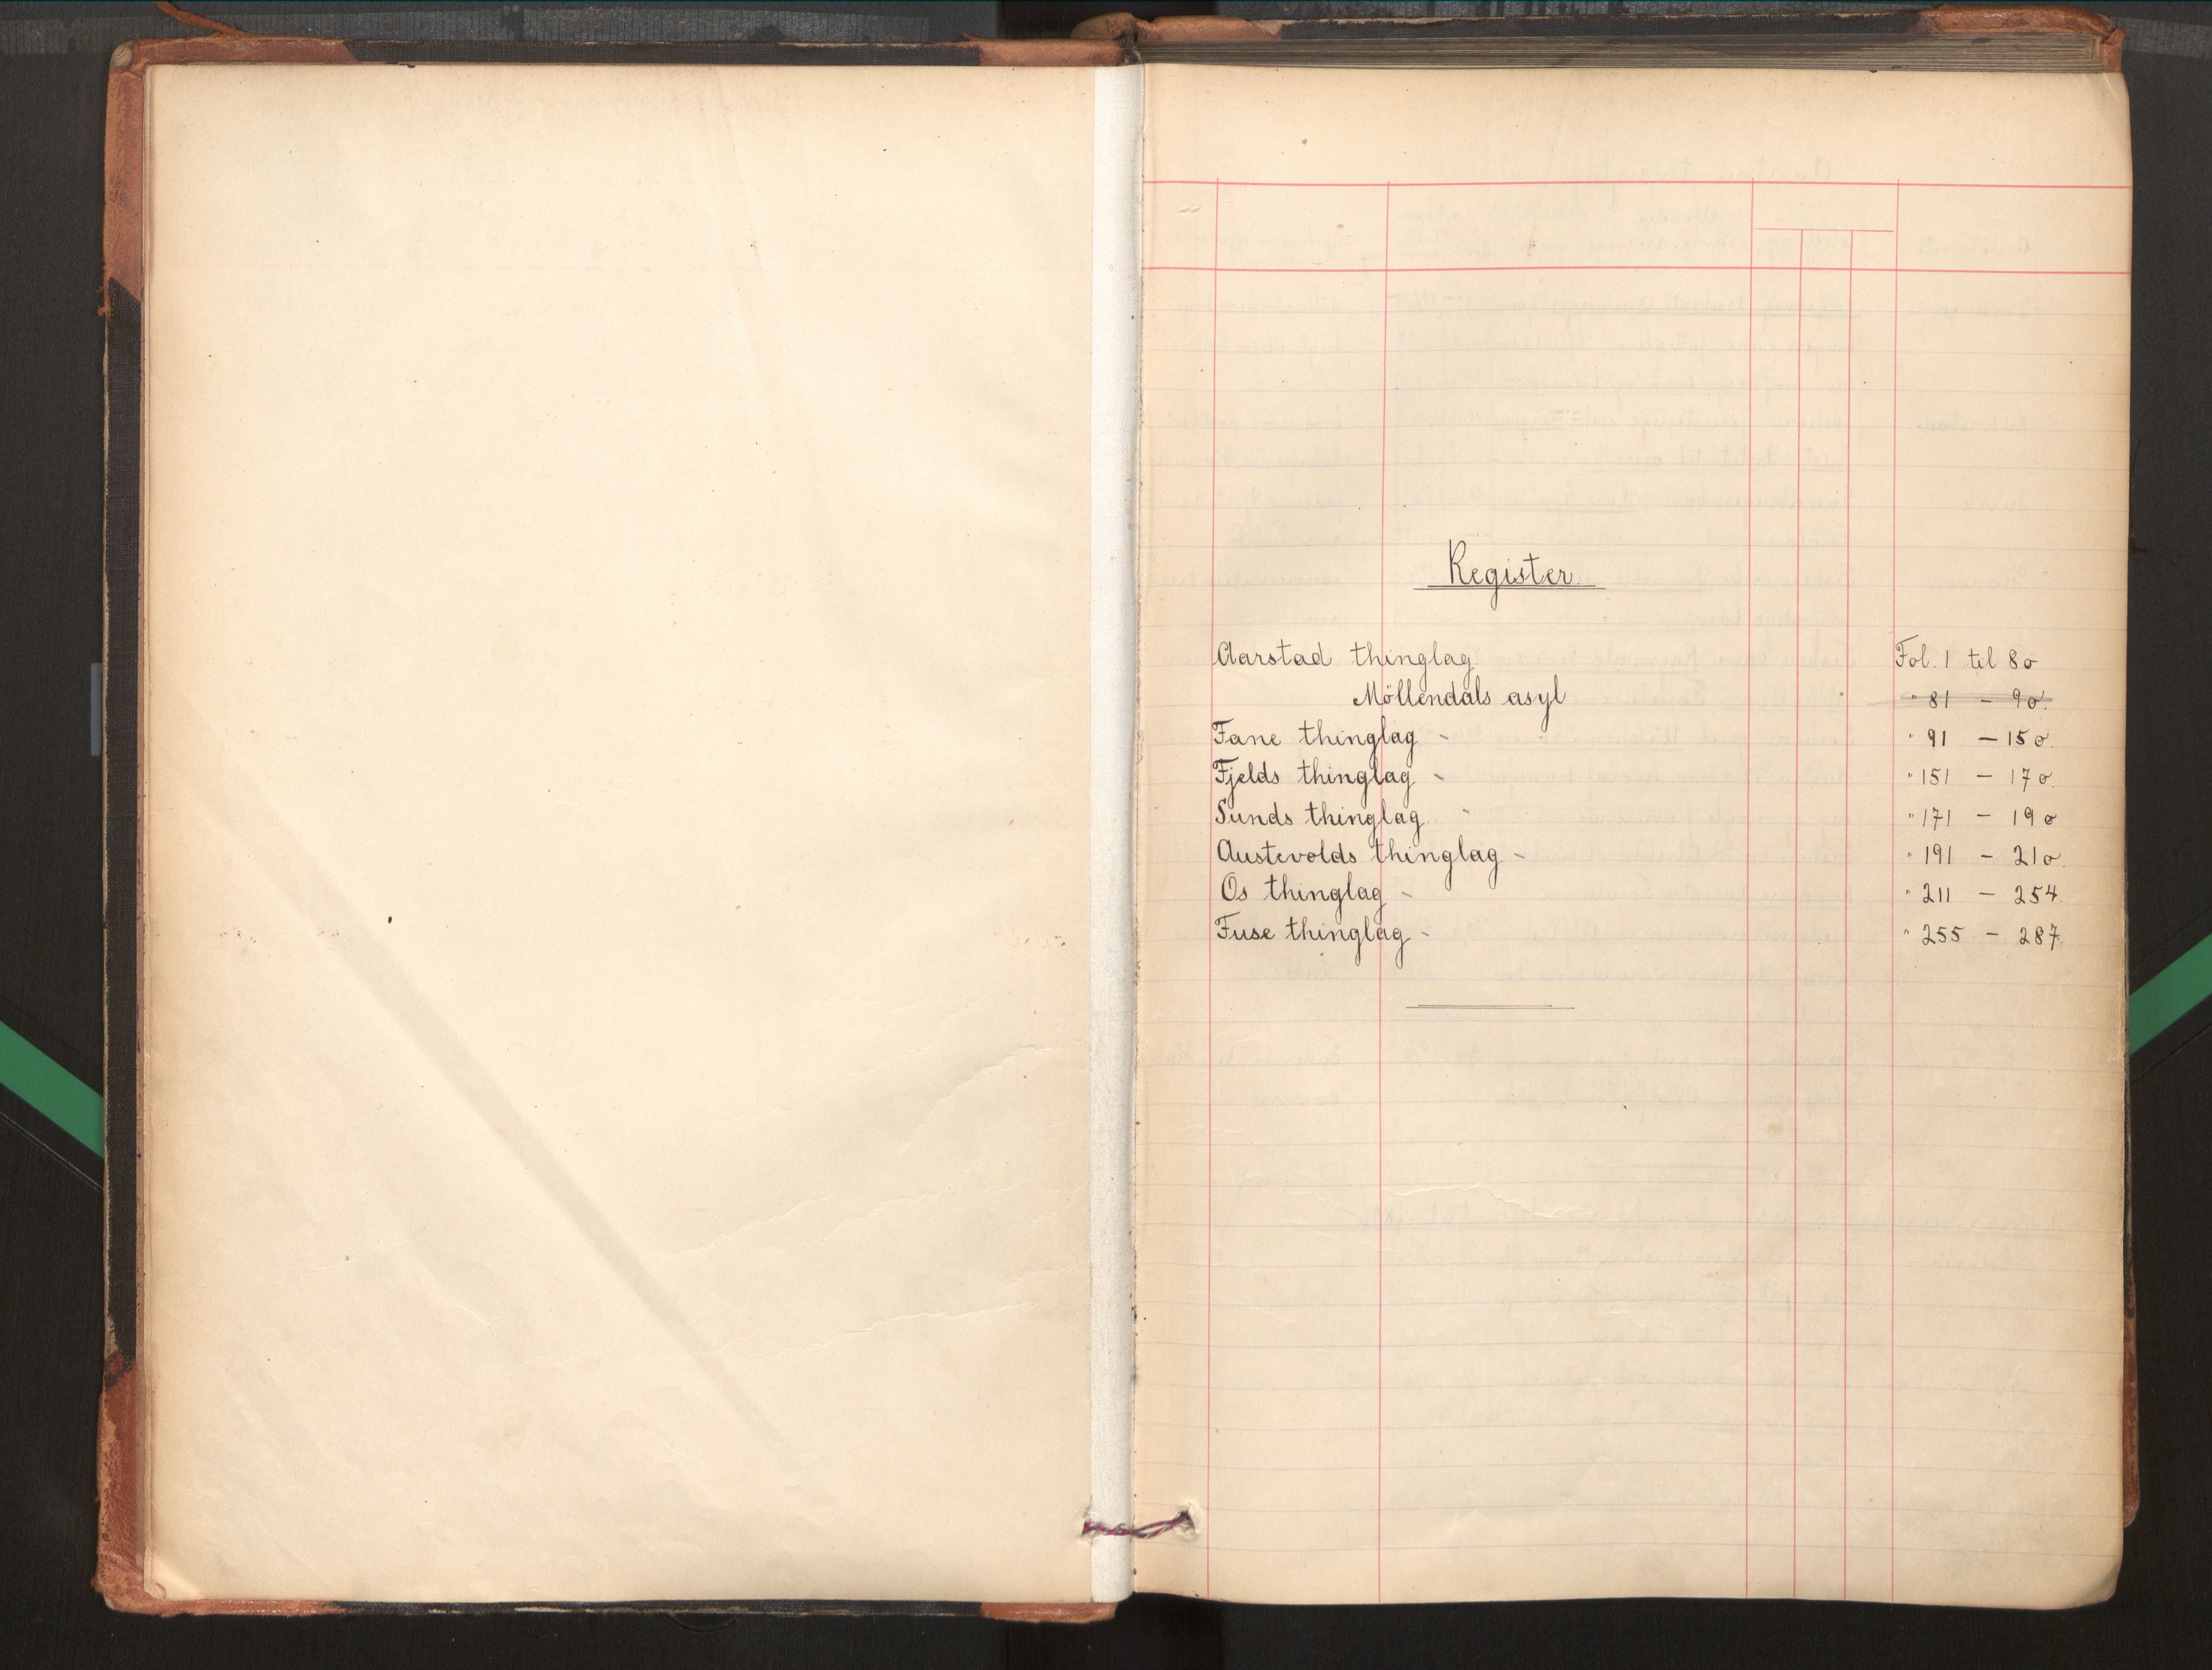 Register
Aarstad thinglag. Fol. 1 til 80
Möllendals asyl " 81 – 90.
Fane thinglag - " 91 – 150.
Fjelds thinglag - " 151 – 170.
Sunds thinglag - " 171 – 190
Austevolds thinglag - " 191 – 210.
Os thinglag - " 211 – 254.
Fuse thinglag - " 255 – 287.